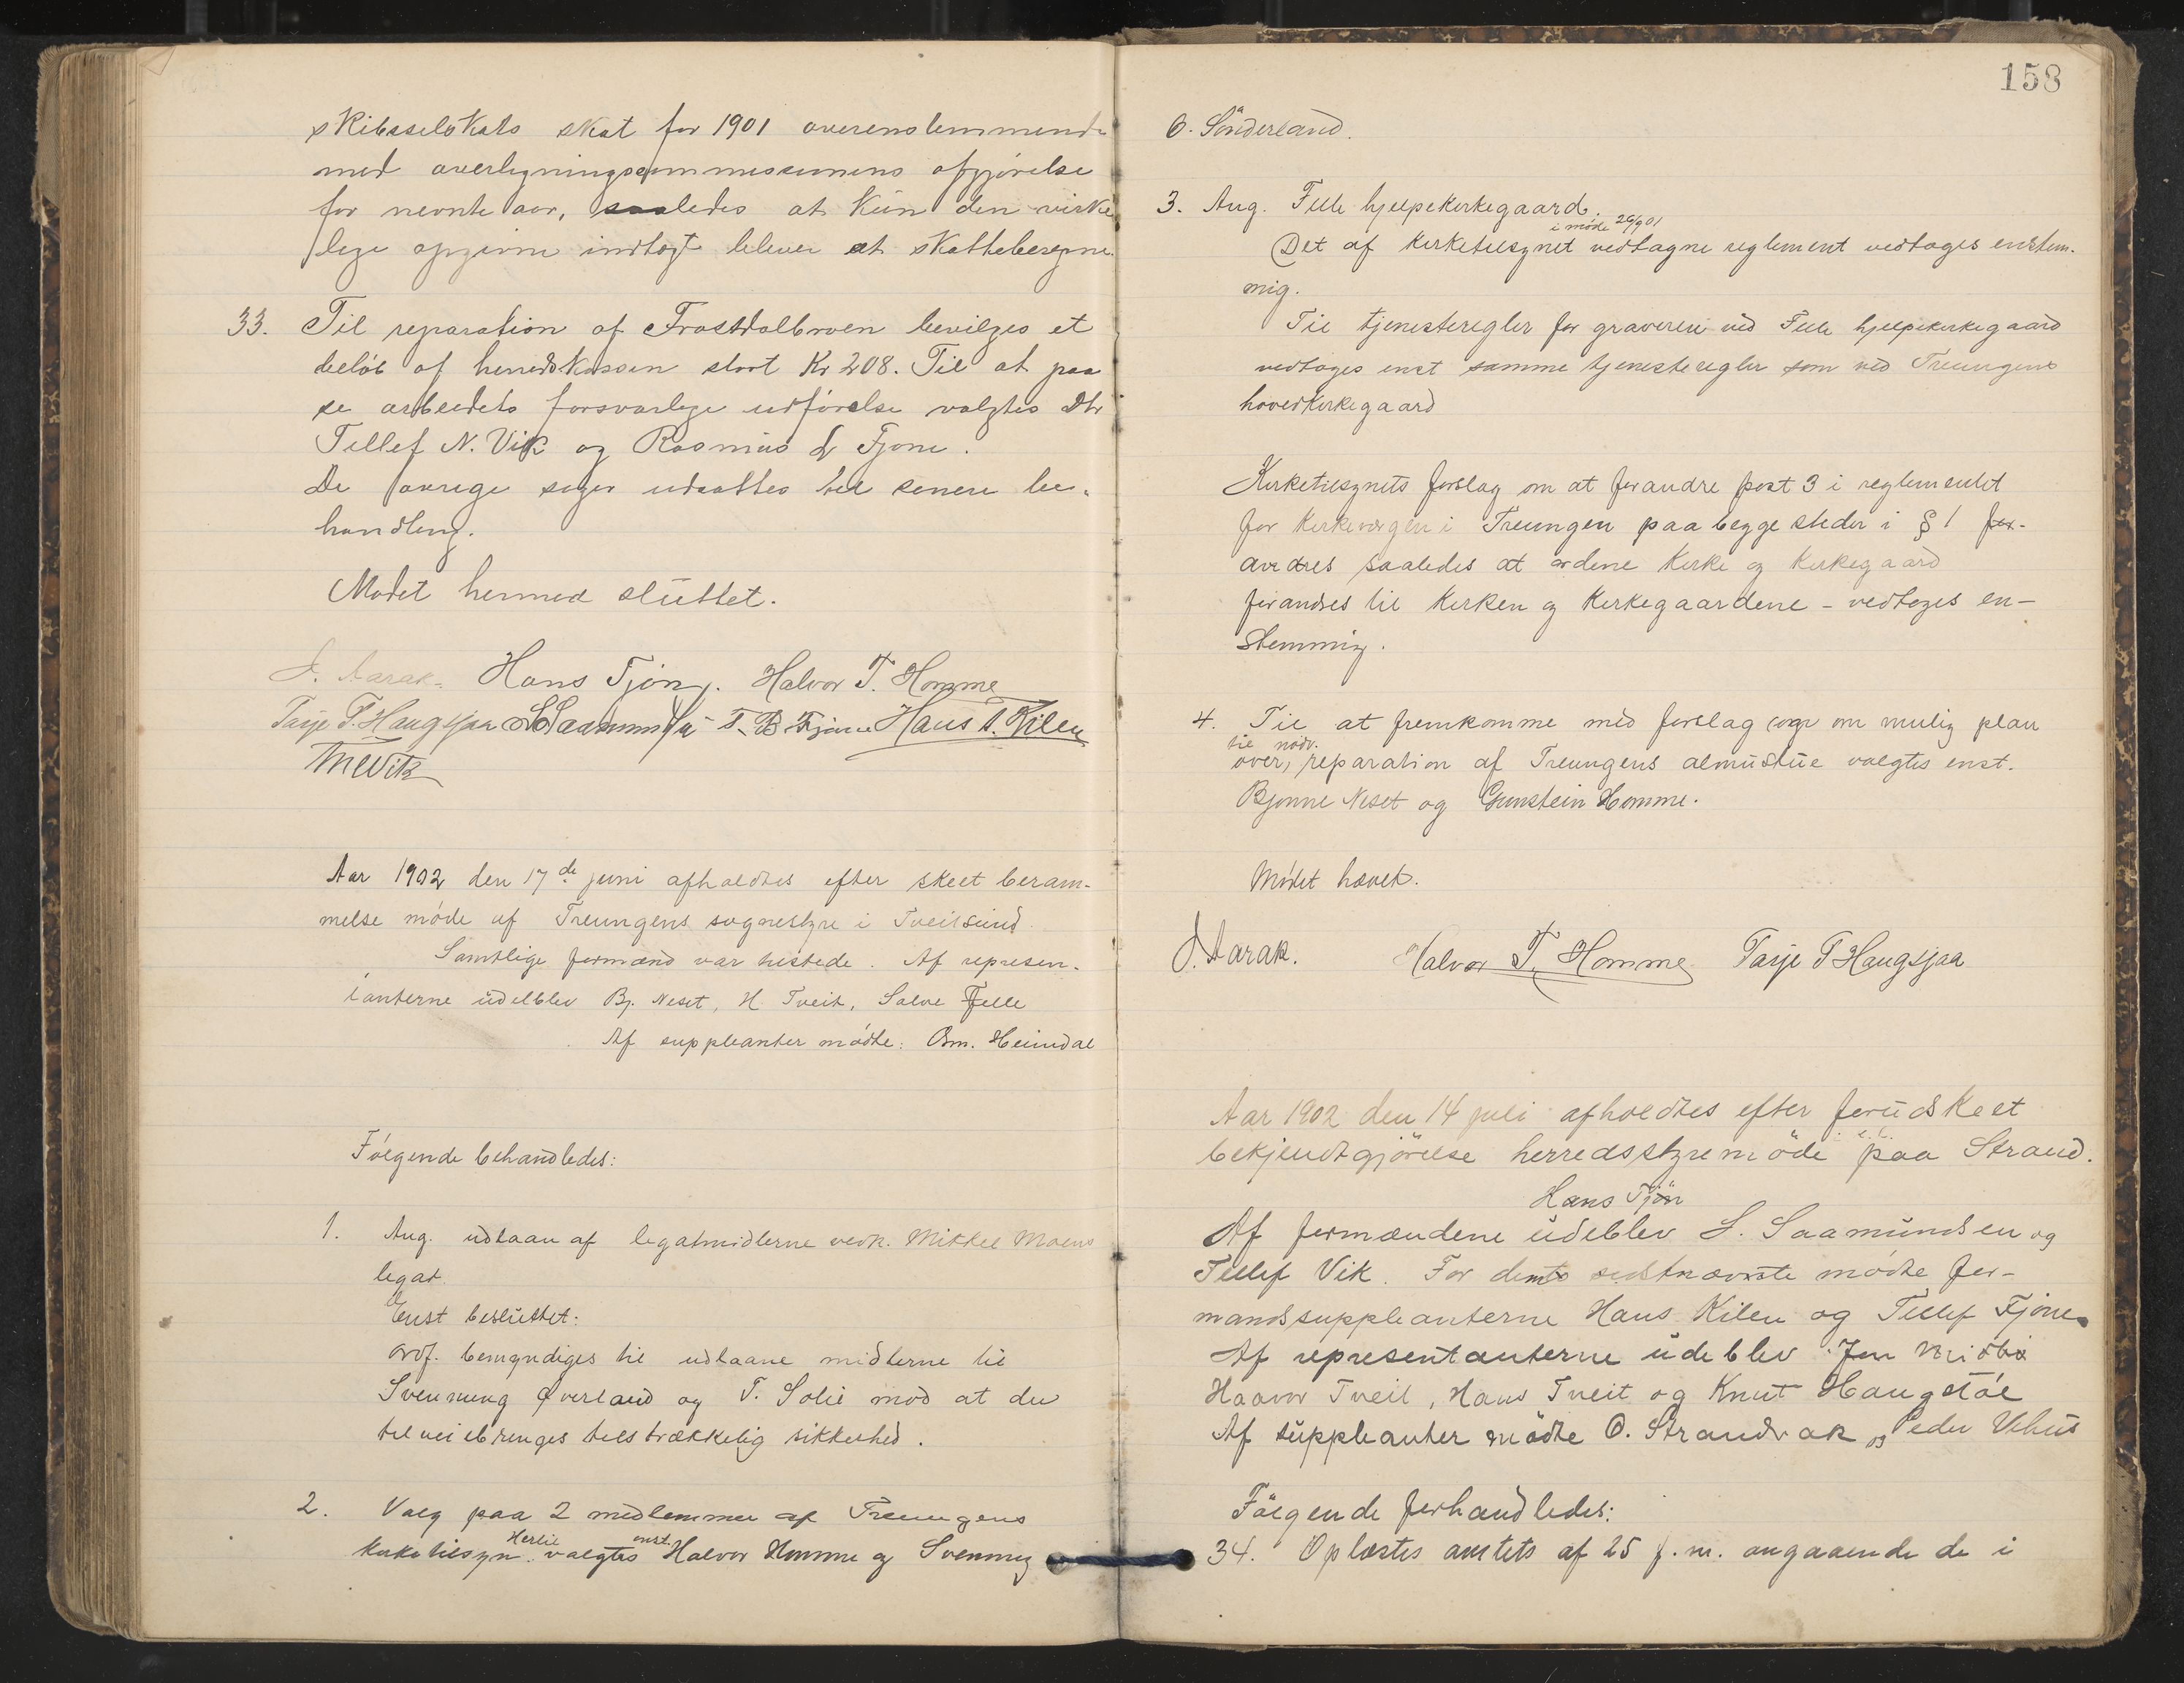 skibsselskabs skat for 1901 overensstemmende
med overligningscommissionens afgjörelse
for nevnte aar, saaledes at kün den virke
lige opgivne indtægt bliver at skatteberegne.
33. Til reparation af Frostdalbroen bevilges et
belöb af herredskassen stort Kr 208. Til at paa
se arbeidets forsvarlige udförelse valgtes Dhr
Tellef N. Vik og Rasmus Fjone.
De övrige sager udsattes til senere be-
handling.
Mödet hermed slüttet.
J. Aarak. Hans Tjönn. Halvor T. Homme
Tarje T. Haugsjaa S. Saamundsen T. B. Fjone Hans A. Kilen
TNVik
Aar 1902 den 17de juni afholdtes efter skeet beram-
melse möde af Treungens sognestyre i Tveitsünd.
Samtlige formænd var tilstede. Af represen-
tanterne üdelblev Bj. Neset, H. Tveit, Salve Felle
Af suppleanter mödte: Osm. Heimdal
Fölgende behandledes:
1. Ang. udlaan af legatmidlerne vedk. Mikkel Moens
legat.
Enst beslüttet:
Ordf. bemyndiges til udlaane midlerne til
Svennung Överland og T. Solli mod at der
tilveiebringes tilstrækkelig sikkerhed.
2. Valg paa 2 medlemmer af Treungens
kirketilsyn. Hertil valgtes enst. Halvor Homme og Svennung
158
O. Sönderland.
3. Ang. Felle hjelpekirkegaard.
i möde 26/9 01
Det af kirketilsynet vedtagne reglement vedtoges enstem-
mig.
Til tjenesteregler for graveren ved Felle hjelpekirkegaard
vedtoges enst samme tjenesteregler som ved Treungens
hovedkirkegaard
Kirketilsynets forslag om at forandre post 3 i reglementet
for kirkeværgen i Treungen paa begge steder i § 1 for-
andres saaledes at ordene kirke og kirkegaard
forandres til kirken og kirkegaardene - vedtoges en-
stemmig.
4. Til at fremkomme med forslag ogr om mulig plan
til nödv.
over, reparation af Treungens almüstüe valgtes enst.
Bjonne Neset og Gunstein Homme.
Mödet hævet.
J. Aarak. Halvor T. Homme Tarje T Haugsjaa
Aar 1902 den 14 juli afholdtes efter forüdskeet
bekjendtgjörelse herredsstyremöde paa Strand.
Hans Tjön
Af formændene üdeblev S. Saamündsen og
Tellef Vik. For de to sidstnævnte mödte for-
mandssuppleanterne Hans Kilen og Tellef Fjone.
Af representanterne üdeblev Jen Midtbö
Haavor Tveit, Hans Tveit og Knut Haugstöl
Af süppleanter mödte O. Strandrak og Peder Vehus
Fölgende forhandledes:
34. Oplæstes amtets af 25 f.m. angaaende de i